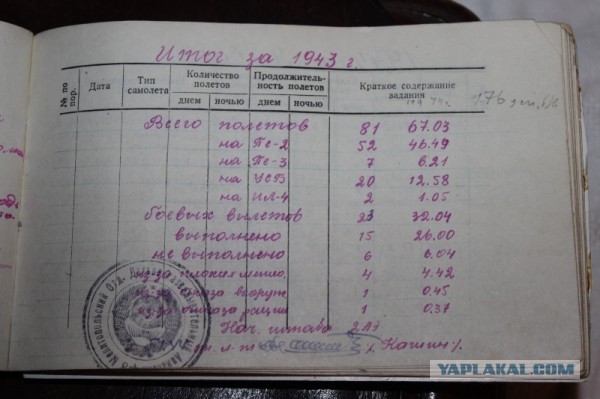 Итог за 1943 г.
№ по пор. Дата Тип самолета Количество полетов Продолжитель-ность полетов Краткое содержание задания
днем ночью днем ночью
176
Всего полетов 81 67.03
на Пе-2 52 46.49
на Пе-3 7 6.21
на УСБ 20 12.58
на ИЛ-4 2 1.05
боевых вылетов 32.04
выполнено 15 26.00
не выполнено 6 6.04
из-за плохой метео. 4 4.42
из-за отказа вооруж 1 0.45
из-за отказа рации 1 0.37
Нач. штаба 2АЭ
л-т /Кашин/
YAPLAKAL.COM